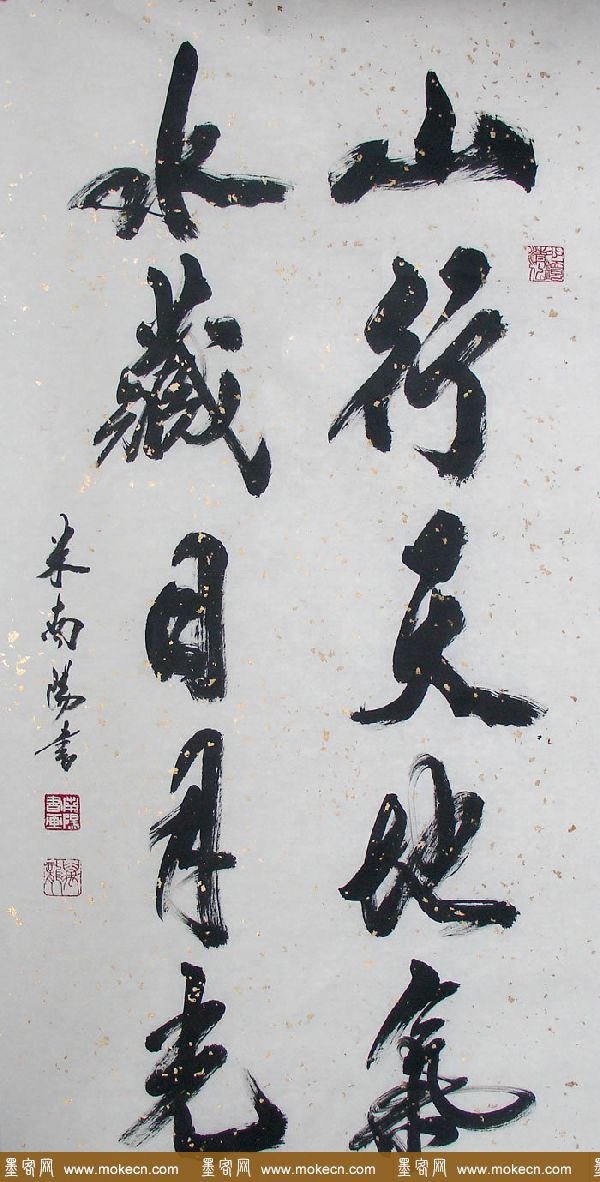 山行天地氣
水藏日月光
米南陽書
墨客网 www.mokecn.com 墨客网 www.mokecn.com 墨客网 www.mokecn.com